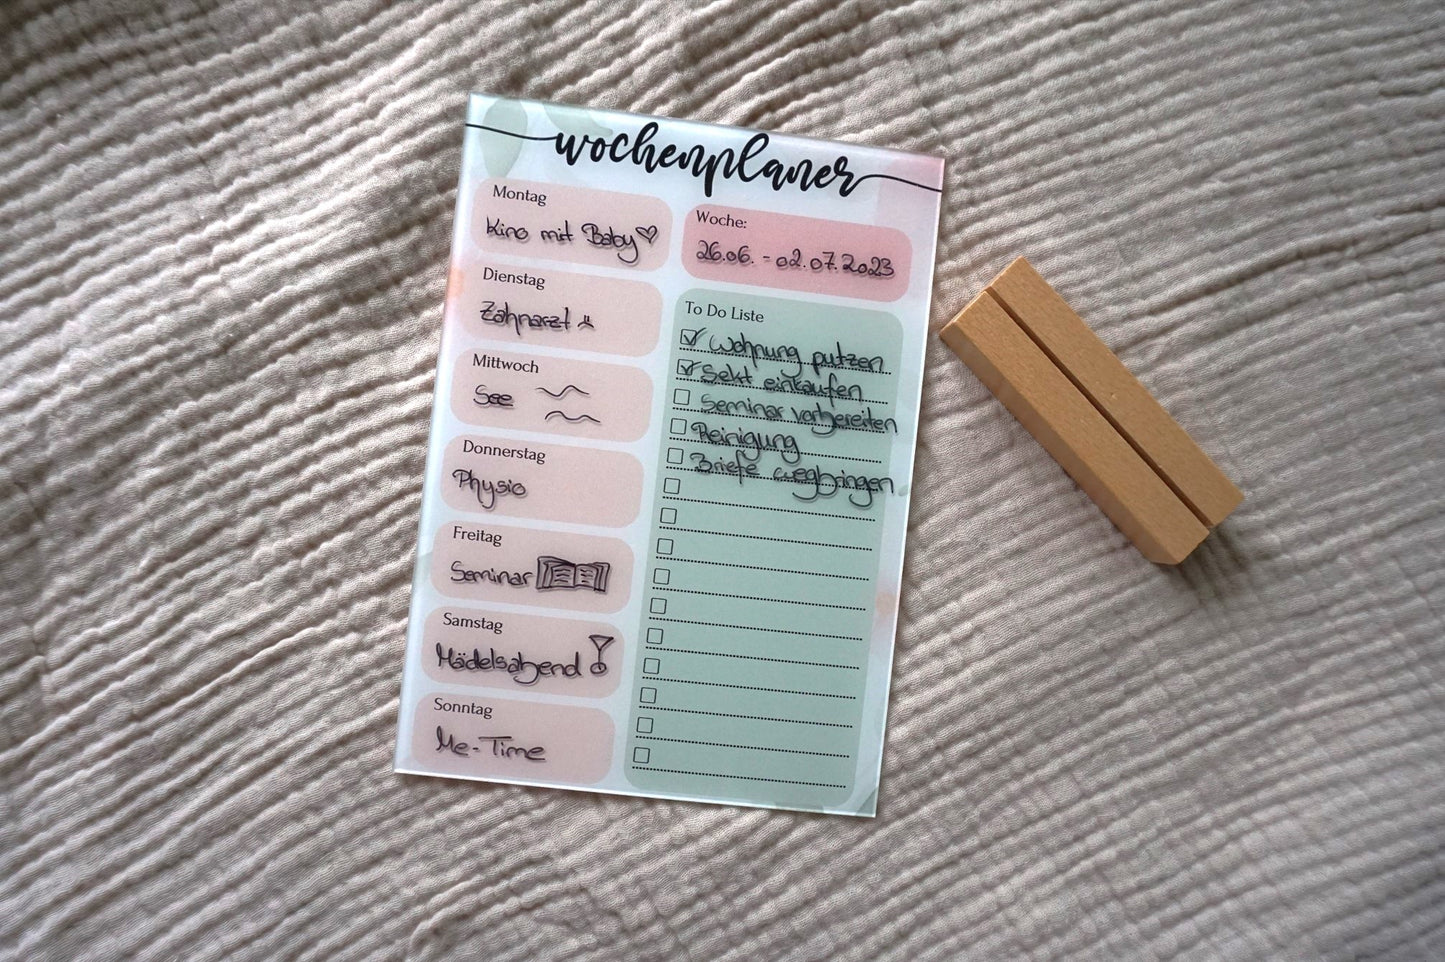 wochenplaner
Montag
Kino mit Baby
Dienstag
Zahnarzt
Mittwoch
See
Donnerstag
Physio
Freitag
Seminar
Samstag
Mädelsabend
Sonntag
Me-Time
Woche:
26.06. - 02.07.2023
To Do Liste
Wohnung putzen
Sekt einkaufen
Seminar vorbereiten
Reinigung
Briefe wegbringen